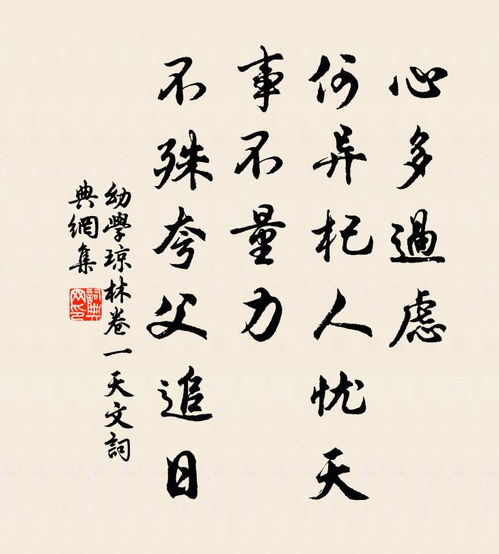 心多過慮
何异杞人忧天
事不量力
不殊夸父追日
幼學琼林卷一天文詞
典網集
詞典网印